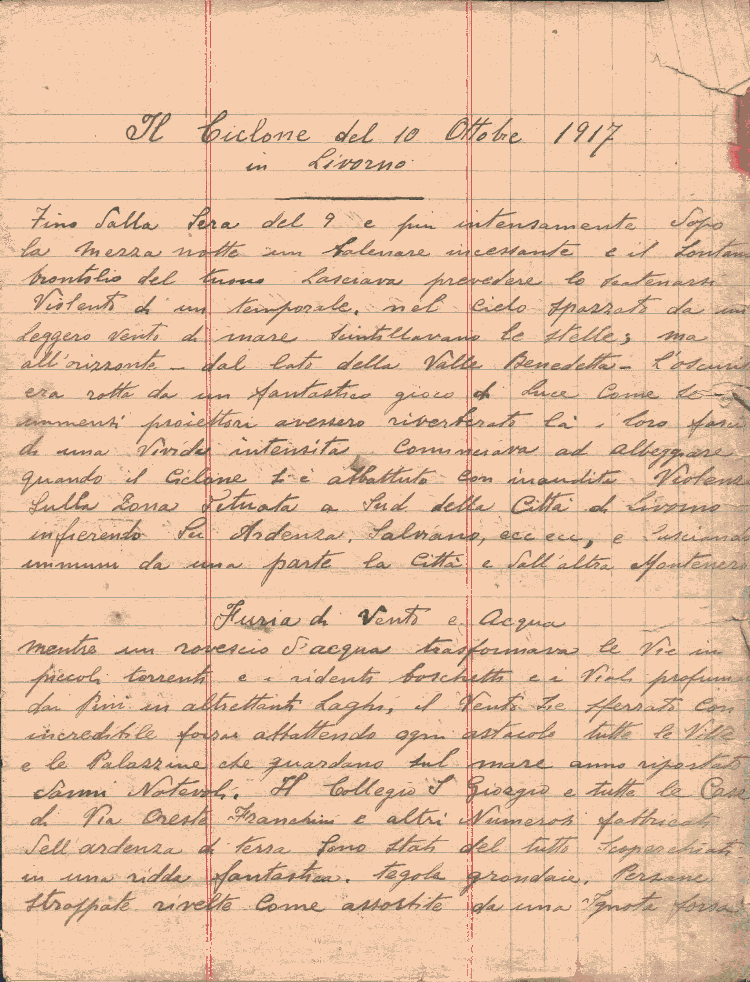 Il Ciclone del 10 Ottobre 1917
in Livorno
Fino dalla Sera del 9 e piu intensamente dopo
la mezza notte un balenare incessante e il Lontan
brontolio del tuono Lasciava prevedere lo scatenarsi
Violento di un temporale, nel cielo spazzato da un
leggero vento di mare scintillavano le stelle; ma
all'orizzonte - dal lato della Valle Benedetta - l'oscuri
era rotta da un fantastico gioco di Luce Come se
immensi proiettori avessero riverberato là i loro fasci
di una Vivida intensita Cominciava ad albeggiare
quando il Ciclone si è abbattuto Con inaudita Violenz
Sulla Zona Situata a Sud della Città di Livorno
infierendo Su Ardenza, Salviano, ecc ecc, e Lasciando
immuni da una parte la Città e dall'altra Montenero
Furia di Vento e Acqua
mentre un rovescio d'acqua trasformava le Vie in
piccoli torrenti e i ridenti boschetti e i Viali profuma
dai Pini in altrettanti Laghi, il Vento Si è sferrato Con
incredibile forza abbattendo ogni ostacolo tutte le Ville
e le Palazzine che guardano sul mare anno riportato
danni Notevoli. Il Collegio S Giorgio e tutte le Case
di Via Oreste Franchini e altri Numerosi fabbricati
dell'ardenza di terra Sono stati del tutto Scoperchiati
in una ridda fantastica. tegole grondaie, Persiane
Strappate rivelte Come assorbite da una Ignota forza